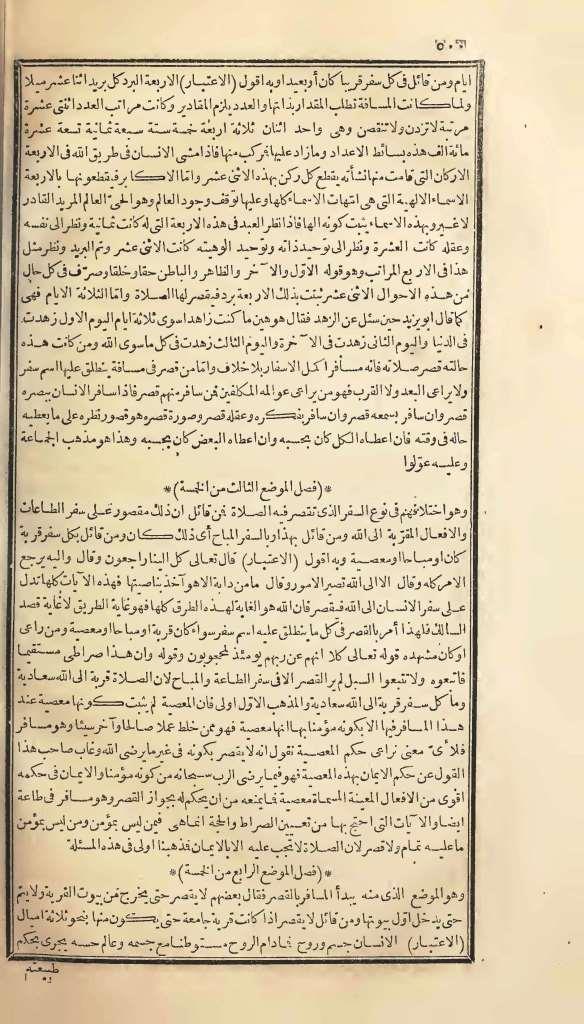 ٥٠٣
ايام ومن قائل فى كل سفر قريبا كان أو بعيدا وبه اقول (الاعتبار) الاربعة البرد كل بريد اثنا عشر ميلا
ولما كانت المسافة تطلب المقدار بذاتها والعدد يلزم المقادير وكانت مراتب العدد اثنتى عشرة
مرتبة لا تزدن ولا تنقصن وهى واحد اثنان ثلاثة اربعة خمسة ستة سبعة ثمانية تسعة عشرة
مائة الف هذه بسائط الاعداد وما زاد عليها فمركب منها فاذا مشى الانسان فى طريق الله فى الاربعة
الاركان التى قامت منها نشأته يقطع كل ركن بهذه الاثنى عشر واما الاكابر فقطعونها بالاربعة
الاسماء الالهية التى هى امتهات الاسماء كلها وعليها توقف وجود العالم وهو الحى العالم المريد القادر
لا غير وبهذه الاسماء يثبت كونه الها فاذا نظر العبد فى هذه الاربعة التى له كانت ثمانية ونظر الى نفسه
وعقله كانت العشرة ونظر الى توحيد ذاته وتوحيد الوهيته كانت الاثنى عشر وتم البريد ونظر مثل
هذا فى الاربع المراتب وهو قوله الاول والآخر والظاهر والباطن حقا وخلقا وصرف فى كل حال
من هذه الاحوال الاثنى عشر ثبتت بذلك الاربعة برد فيقصر لها الصلاة واما الثلاثة الايام فهى
كما قال ابو يزيد حين سئل عن الزهد فقال هو هين ما كنت زاهدا سوى ثلاثة ايام اليوم الاول زهدت
فى الدنيا واليوم الثانى زهدت فى الآخرة واليوم الثالث زهدت فى كل ما سوى الله ومن كانت هذه
حالته قصر صلاته فانه مسافر اكمل الاسفار بلا خلاف واما من قصر فى مسافة ينطلق عليها اسم سفر
ولا يراعى البعد ولا القرب فهو من يراعى عوالمه المكلفين فمن سافر منهم قصر فاذا سافر الانسان ببصره
قصر وان سافر بسمعه قصر وان سافر بفكره وعقله قصر وصورة قصره هو قصور نظره على ما يعطيه
حاله فى وقته فان اعطاه الكل كان بحسبه وان اعطاه البعض كان بحسبه وهذا هو مذهب الجماعة
وعليه عولوا
*(فصل الموضع الثالث من الخمسة)*
وهو اختلافهم فى نوع السفر الذى تقصر فيه الصلاة فمن قائل ان ذلك مقصور على سفر الطاعات
والافعال المقربة الى الله ومن قائل بهذا وبالسفر المباح أى ذلك كان ومن قائل بكل سفر قربة
كان او مباحا او معصية وبه اقول (الاعتبار) قال تعالى كل الينا راجعون وقال واليه يرجع
الامر كله وقال الا الى الله تصير الامور وقال ما من دابة الا هو آخذ بناصيتها فهذه الآيات كلها تدل
على سفر الانسان الى الله فيقصر فان الله هو الغاية لهذه الطرق كلها فهو غاية الطريق لا غاية قصد
السالك فلهذا أمر بالقصر فى كل ما ينطلق عليه اسم سفر سواء كان قربة او مباحا او معصية ومن راعى
او كان مشهده قوله تعالى كلا انهم عن ربهم يومئذ لمحجوبون وقوله وان هذا صراطى مستقيما
فاتبعوه ولا تتبعوا السبل لم ير القصر الا فى سفر الطاعة والمباح لان الصلاة قربة الى الله سعادية
وما كل سفر قربة الى الله سعادية والمذهب الاول اولى فان المعصية لم يثبت كونها معصية عند
هذا المسافر فيها الا بكونه مؤمنا بها انها معصية فهو ممن خلط عملا صالحا وآخر سيئا وهو مسافر
فلأى معنى نراعى حكم المعصية نقول انه لا يقصر بكونه فى غير ما يرضى الله وغاب صاحب هذا
القول عن حكم الايمان بهذه المعصية فهو فيما يرضى الرب سبحانه من كونه مؤمنا والايمان فى حكمه
اقوى من الافعال المعينة المسماة معصية فما يمنعه من ان يحكم له بجواز القصر وهو مسافر فى طاعة
ايضا والآيات التى احتج بها من تعيين الصراط والحجة انما هى فيمن ليس بمؤمن ومن ليس بمؤمن
ما عليه تمام ولا قصر لان الصلاة لا تجب عليه الا بالايمان فذهبنا اولى فى هذه المسئلة
*(فصل الموضع الرابع من الخمسة)*
وهو الموضع الذى منه يبدأ المسافر بالقصر فقال بعضهم لا يقصر حتى يخرج من بيوت القرية ولا يتم
حتى يدخل اول بيوتها ومن قائل لا يقصر اذا كانت قرية جامعة حتى يكون منها بنحو ثلاثة اميال
(الاعتبار) الانسان جسم وروح فمادام الروح مستوطنا مع جسمه وعالم حسه يجرى بحكم
طبيعته